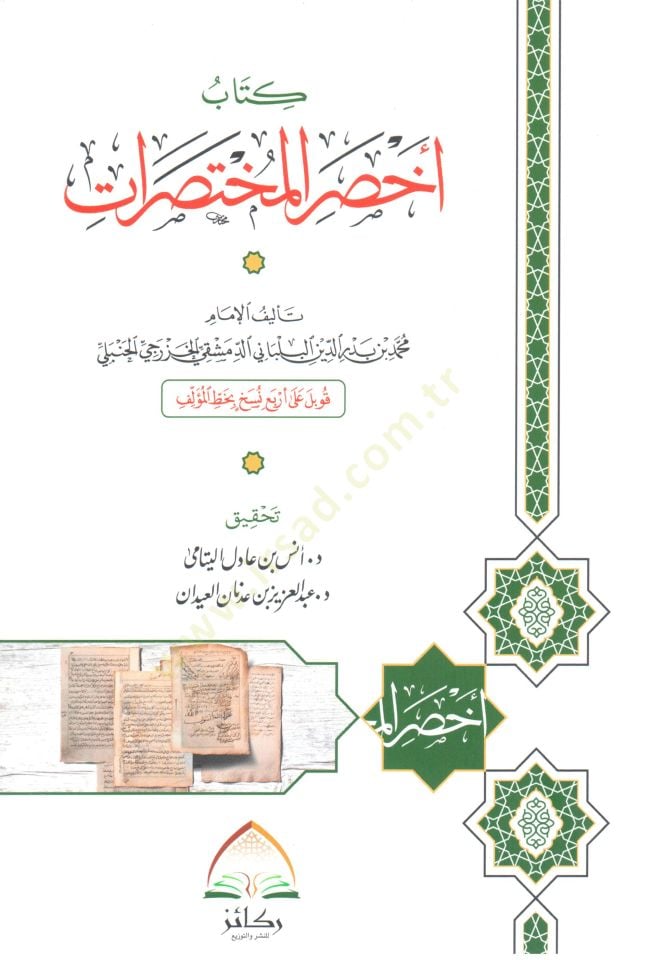 كِتَابُ
أَخْصَرِ المُخْتَصَرَاتِ
تَأليفُ الإمَامِ
مُحَمَّد بْن بَدْرِ الدِّيْنِ البَلْبَانِي الدِّمَشْقِيِّ الخَزْرَجِيِّ الحَنْبَلِيِّ
قُوبِلَ عَلَى أرْبَعِ نُسَخٍ بِخَطِّ المُؤَلِّفِ
تَحْقِيق
د. أنس بن عادل اليتامى
د. عبد العزيز بن عدنان العيدان
أَخْصَرِ المخ
ركائز
للنشر والتوزيع
www.irsad.com.tr